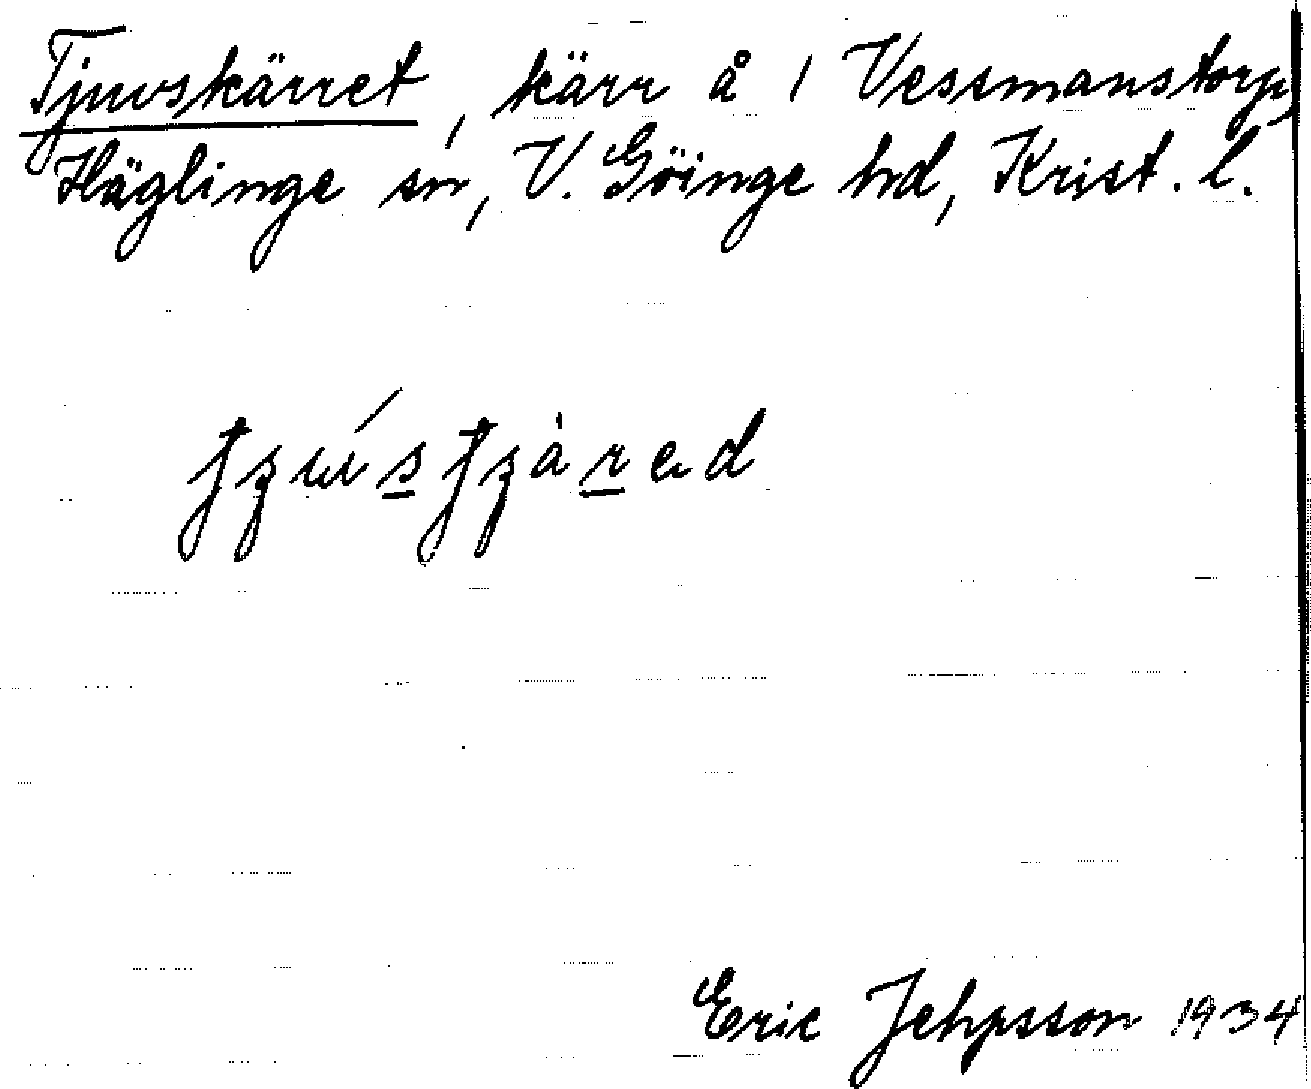 Tjuvskärret, kärr å 1 Vessmanstorp,
Häglinge sn, V. Göinge hd, Krist. l.
Eric Jehpsson 1934